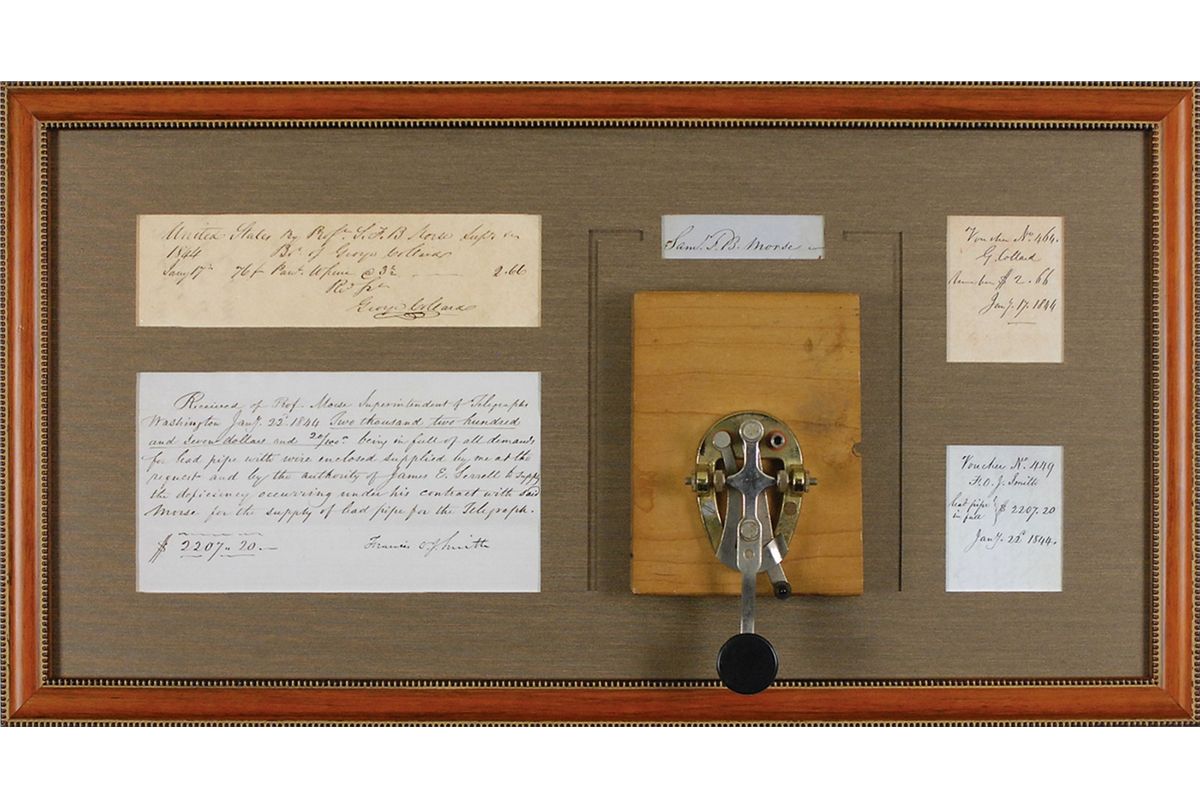 United States By Profr. S. F. B. Morse Supt.
1844 Bt. of George Collard
Jany 17th 76 @ 3½ 2.66
Recd. pt.
George Collard
Received of Prof. Morse Superintendent of Telegraphs
Washington Jany. 22d. 1844 Two thousand two hundred
and seven dollars and 20/100 being in full of all demands
for lead pipe with wire enclosed supplied by me at the
request and by the authority of James E. Serrell to supply
the deficiency occurring under his contract with said
Morse for the supply of lead pipe for the Telegraph.
$ 2207.20. Francis O. J. Smith
Saml. F. B. Morse
Voucher No. 464.
G. Collard
$ 2.66
Jany. 17. 1844
Voucher No. 449
F. O. J. Smith
lead pipe
in full $ 2207.20
Jany. 22d. 1844.